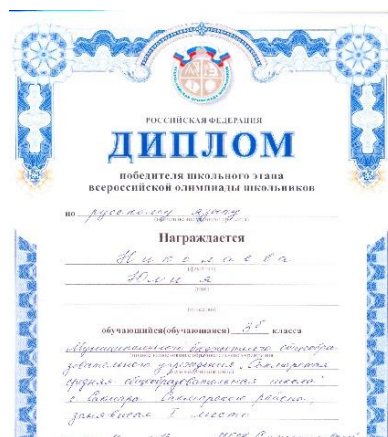 РОССИЙСКАЯ ФЕДЕРАЦИЯ
ДИПЛОМ
победителя школьного этапа
всероссийской олимпиады школьников
по русскому языку
Награждается
Николаева
Юлия
обучающийся(обучающаяся) класса
Муниципального бюджетного общеобра-
зовательного учреждения "Сакмарская
средняя общеобразовательная школа"
с. Сакмара Сакмарского района,
занявшая I место